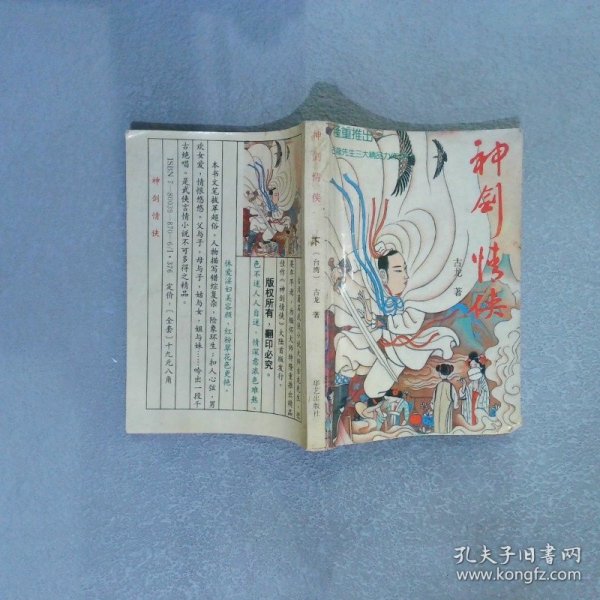 隆重推出
古龙先生三大精品力作之
神剑情侠
古龙 著
神剑情侠
下
(台湾) 古龙 著
华艺出版社
休爱淫妇美容颜，红粉翠花色更艳。
色不迷人人自迷，情深意浓色难熬。
版权所有，翻印必究。
本书文笔拔萃超俗，人物描写错综复杂，险象环生；扣人心弦，男
欢女爱，情恨悠悠。父与子，母与子，姑与女，姐与妹……吟出一段千
古绝唱。是武侠言情小说不可多得之精品。
定价：(全套) 十九元八角
神剑情侠
孔夫子旧书网
www.kongfz.com